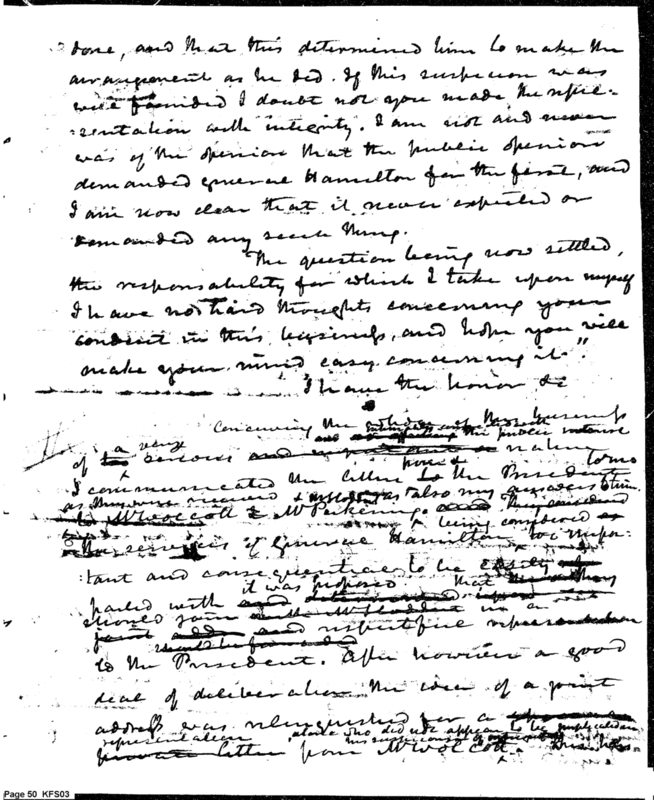 done, and that this determined him to make the
arrangement as he did. If this suspicion was
well founded I doubt not you made the repre-
sentation with integrity. I am not and never
was of the opinion that the public opinion
demanded general Hamilton for the first, and
I am now clear that it never expected or
demanded any such thing.
The question being now settled,
the responsability for which I take upon myself
I have no hard thoughts concerning your
conduct in this business, and hope you will
make your mind easy concerning it."
"I have the honor &c
Conceiving the business
the public
of a very serious nature
I communicated the letters to the President to me
as they were received & also my answers to him
to Mr Wolcott & Mr Pickering.
The services of General Hamilton being considered too impor-
tant and consequential to be easily
parted with it was proposed that
should join in a
respectful representation
to the President. After however a good
deal of deliberation the idea of a joint
address was relinquished for a
representation who did not appear to be implicated in
letter from Mr Wolcott.
Page 50 KFS03